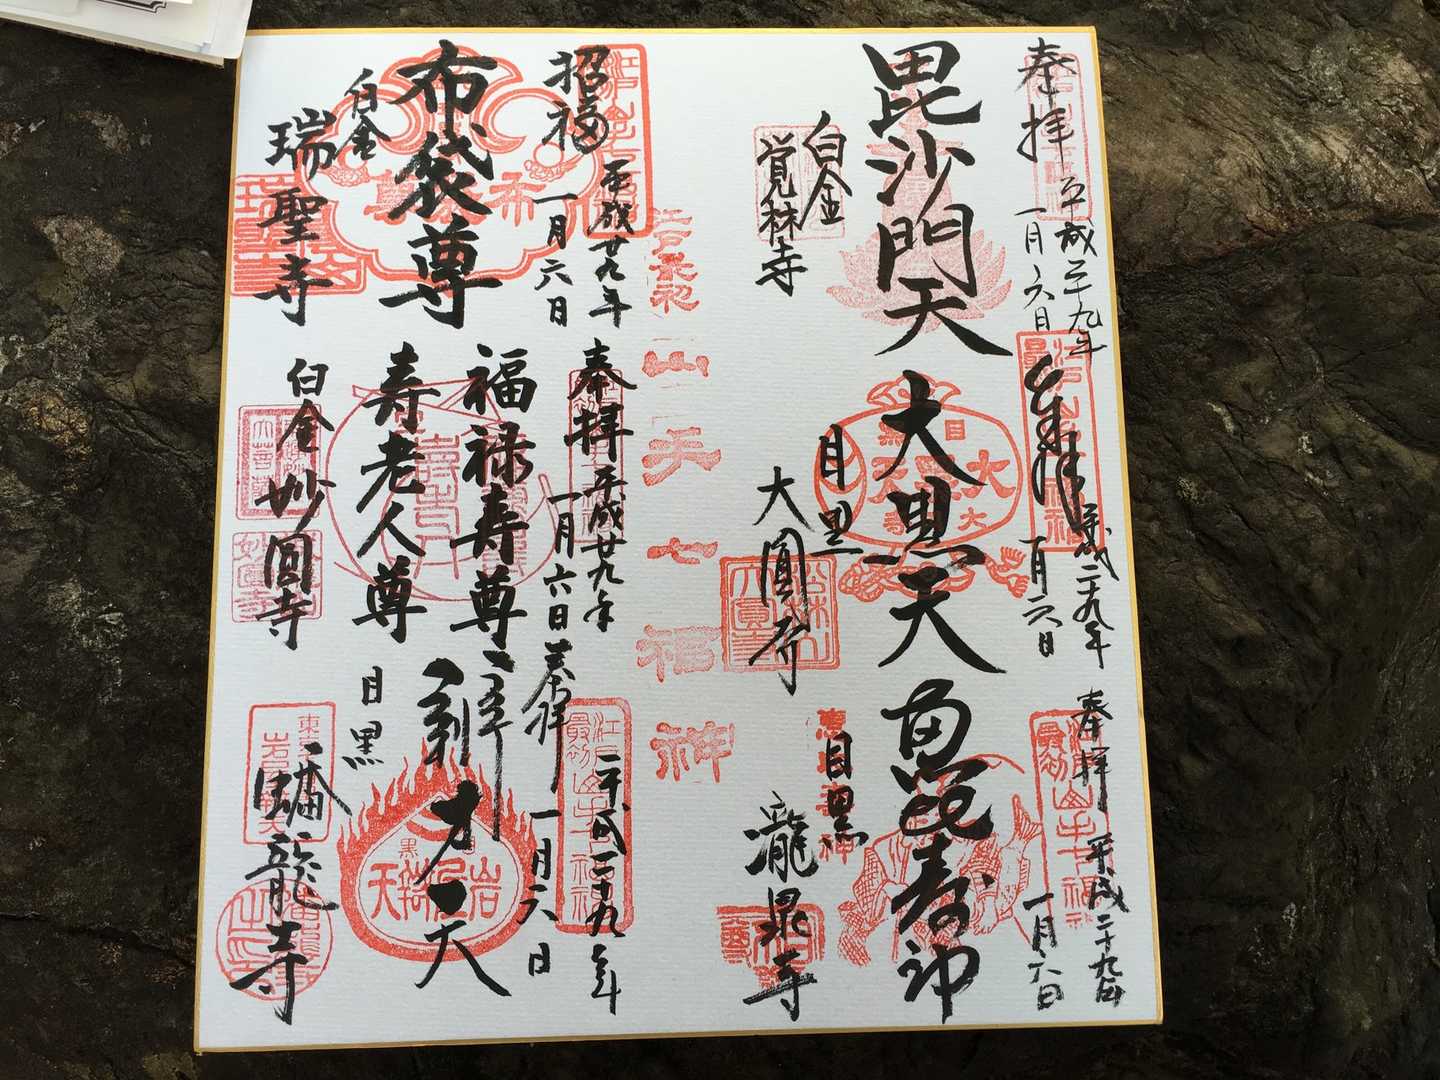 奉拝
平成二十九年
一月六日
毘沙門天
白金
覚林寺
奉拝
平成二十九年
一月六日
大黒天
目黒
大圓寺
奉拝
平成二十九年
一月六日
恵比寿神
目黒
瀧泉寺
江戸最初
山
天
七
福
神
招福
平成廿九年
一月六日
布袋尊
白金
瑞聖寺
奉拝
平成廿九年
一月六日
福禄寿尊
寿老人尊
白金
妙圓寺
奉拝
平成二十九年
一月六日
辨才天
目黒
蟠龍寺